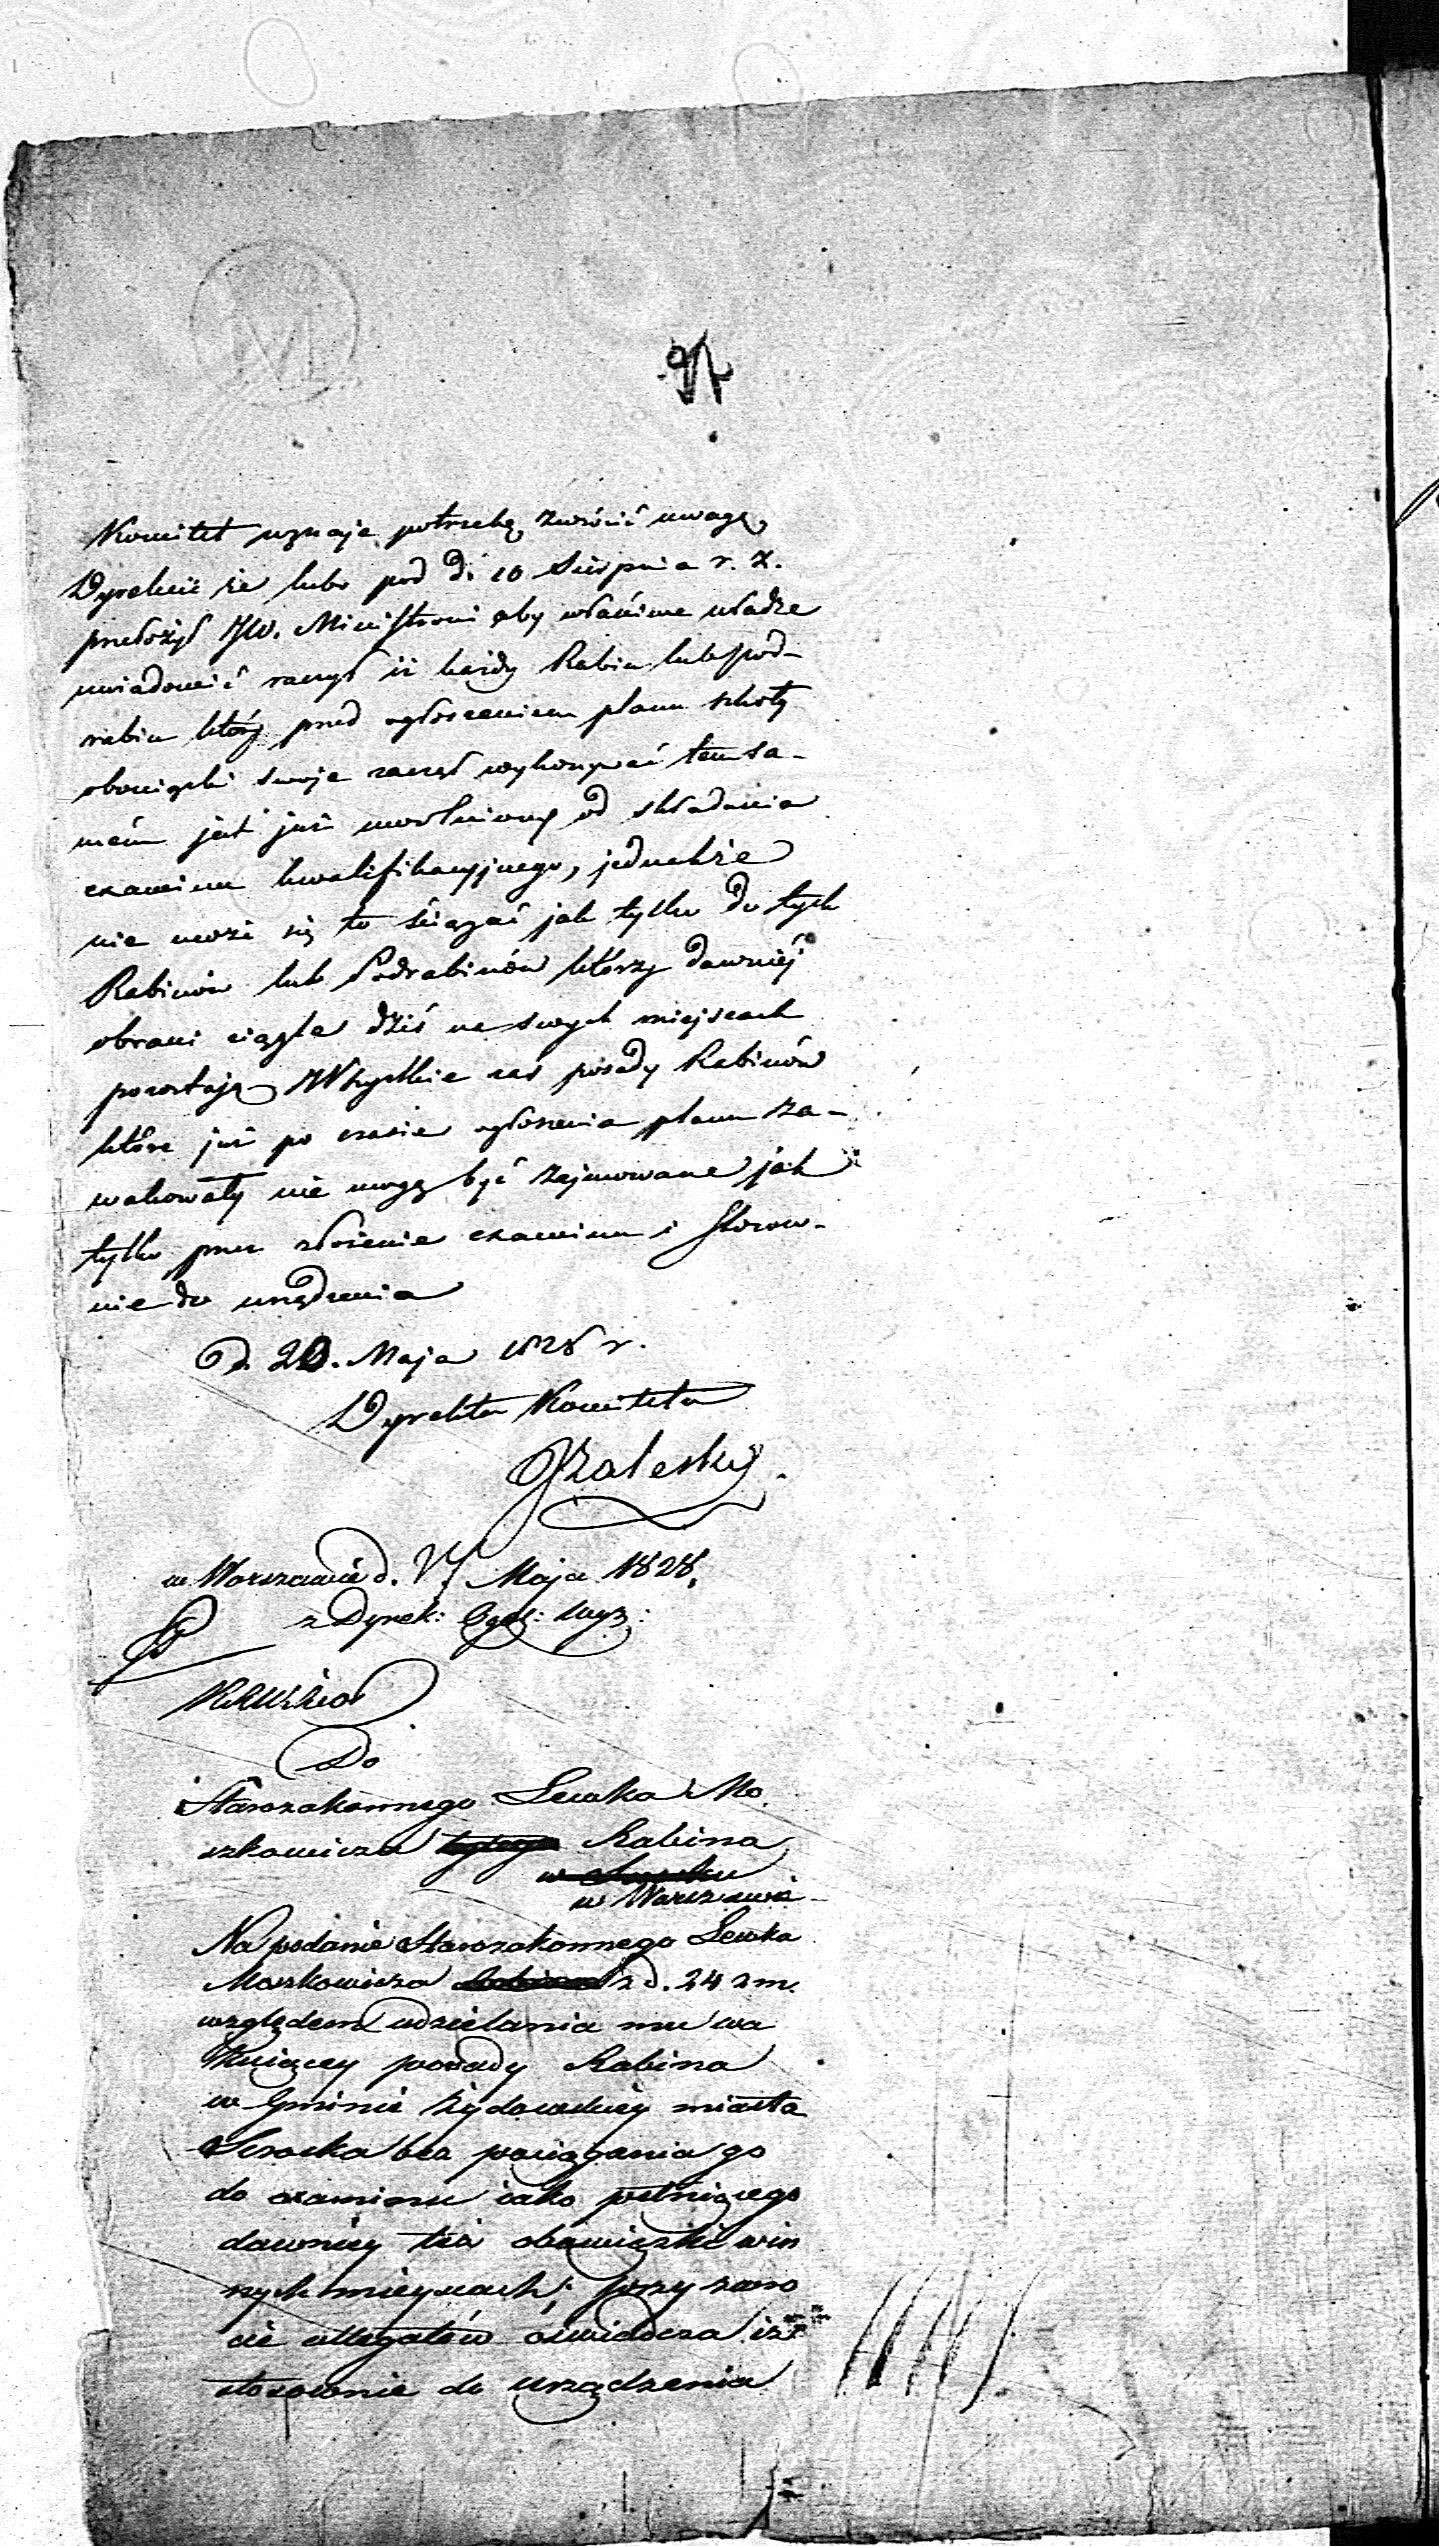 Komitet uznaje potrzebę zwrócić uwagę
Dyrekcii że lubo pod d. 10 Sierpnia r. z.
przełożył JW. Ministrowi aby właściwe władze
uwiadomić raczył iż każdy Rabin lub pod-
rabin który przed ogłoszeniem planu szkoły
obowiązki swoje zaczął wykonywać tem sa-
mém jest już uwolniony od składania
examinu kwalifikacyjnego, jednakże
nie może się to ściągać jak tylko do tych
Rabinów lub Podrabinów którzy dawniéj
obrani ciągle dziś na swych miejscach
pozostają Wszystkie zaś posady Rabinów
które już po czasie ogłoszenia planu za-
wakowały nie mogą być zajmowane jak
tylko przez złożenie examinu i stosow-
nie do urządzenia
d. 20. Maja 1828 r.
Dyrektor Komitetu
JZaleski
w Warszawie d. Maja 1828.
z Dyrek: Ogól: Wyz:
Do
Starozakonnego Lewka Mo
szkowicza Rabina
w Warszawie
Na podanie Starozakonnego Lewka
Moszkowicza z d. 24 z m.
względem udzielania mu wa
kuiącey posady Rabina
w Gminie żydowskiey miasta
Serocka bez pociągania go
do examinu iako pełniącego
dawniey też obowiązki w in
nych mieyscach; przy zwro
cie allegatów oświadcza iż
stosownie do urządzenia